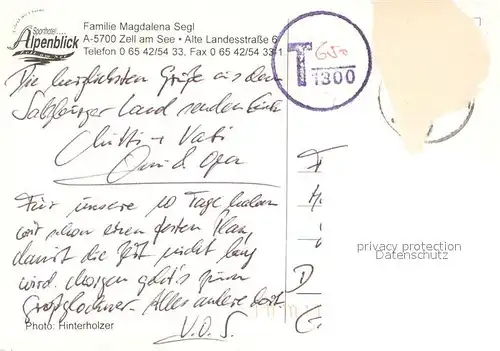 Sporthotel....
Alpenblick
Familie Magdalena Segl
A-5700 Zell am See • Alte Landesstraße 6
Telefon 0 65 42/54 33, Fax 0 65 42/54 33-1
T 650
1300
Die herzlichsten Grüße aus dem
Salzburger Land senden Eure
Mutti + Vati
Omi & Opa
Für unsere 10 Tage haben
wir schon einen festen Plan,
damit die Zeit nicht lang
wird. Morgen geht's zum
Großglockner. Alles andere dort
V.O.S.
D
Photo: Hinterholzer
privacy protection
Datenschutz